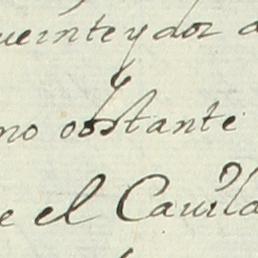 ueinte y dos
no obstante
e el Cavildo